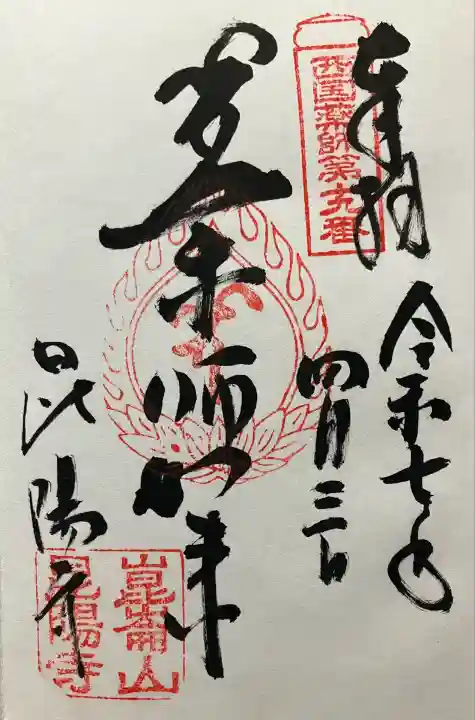 奉拝
西国薬師第十九番
令和七年
四月三日
薬師如来
昆陽寺
崑崙山
昆陽寺